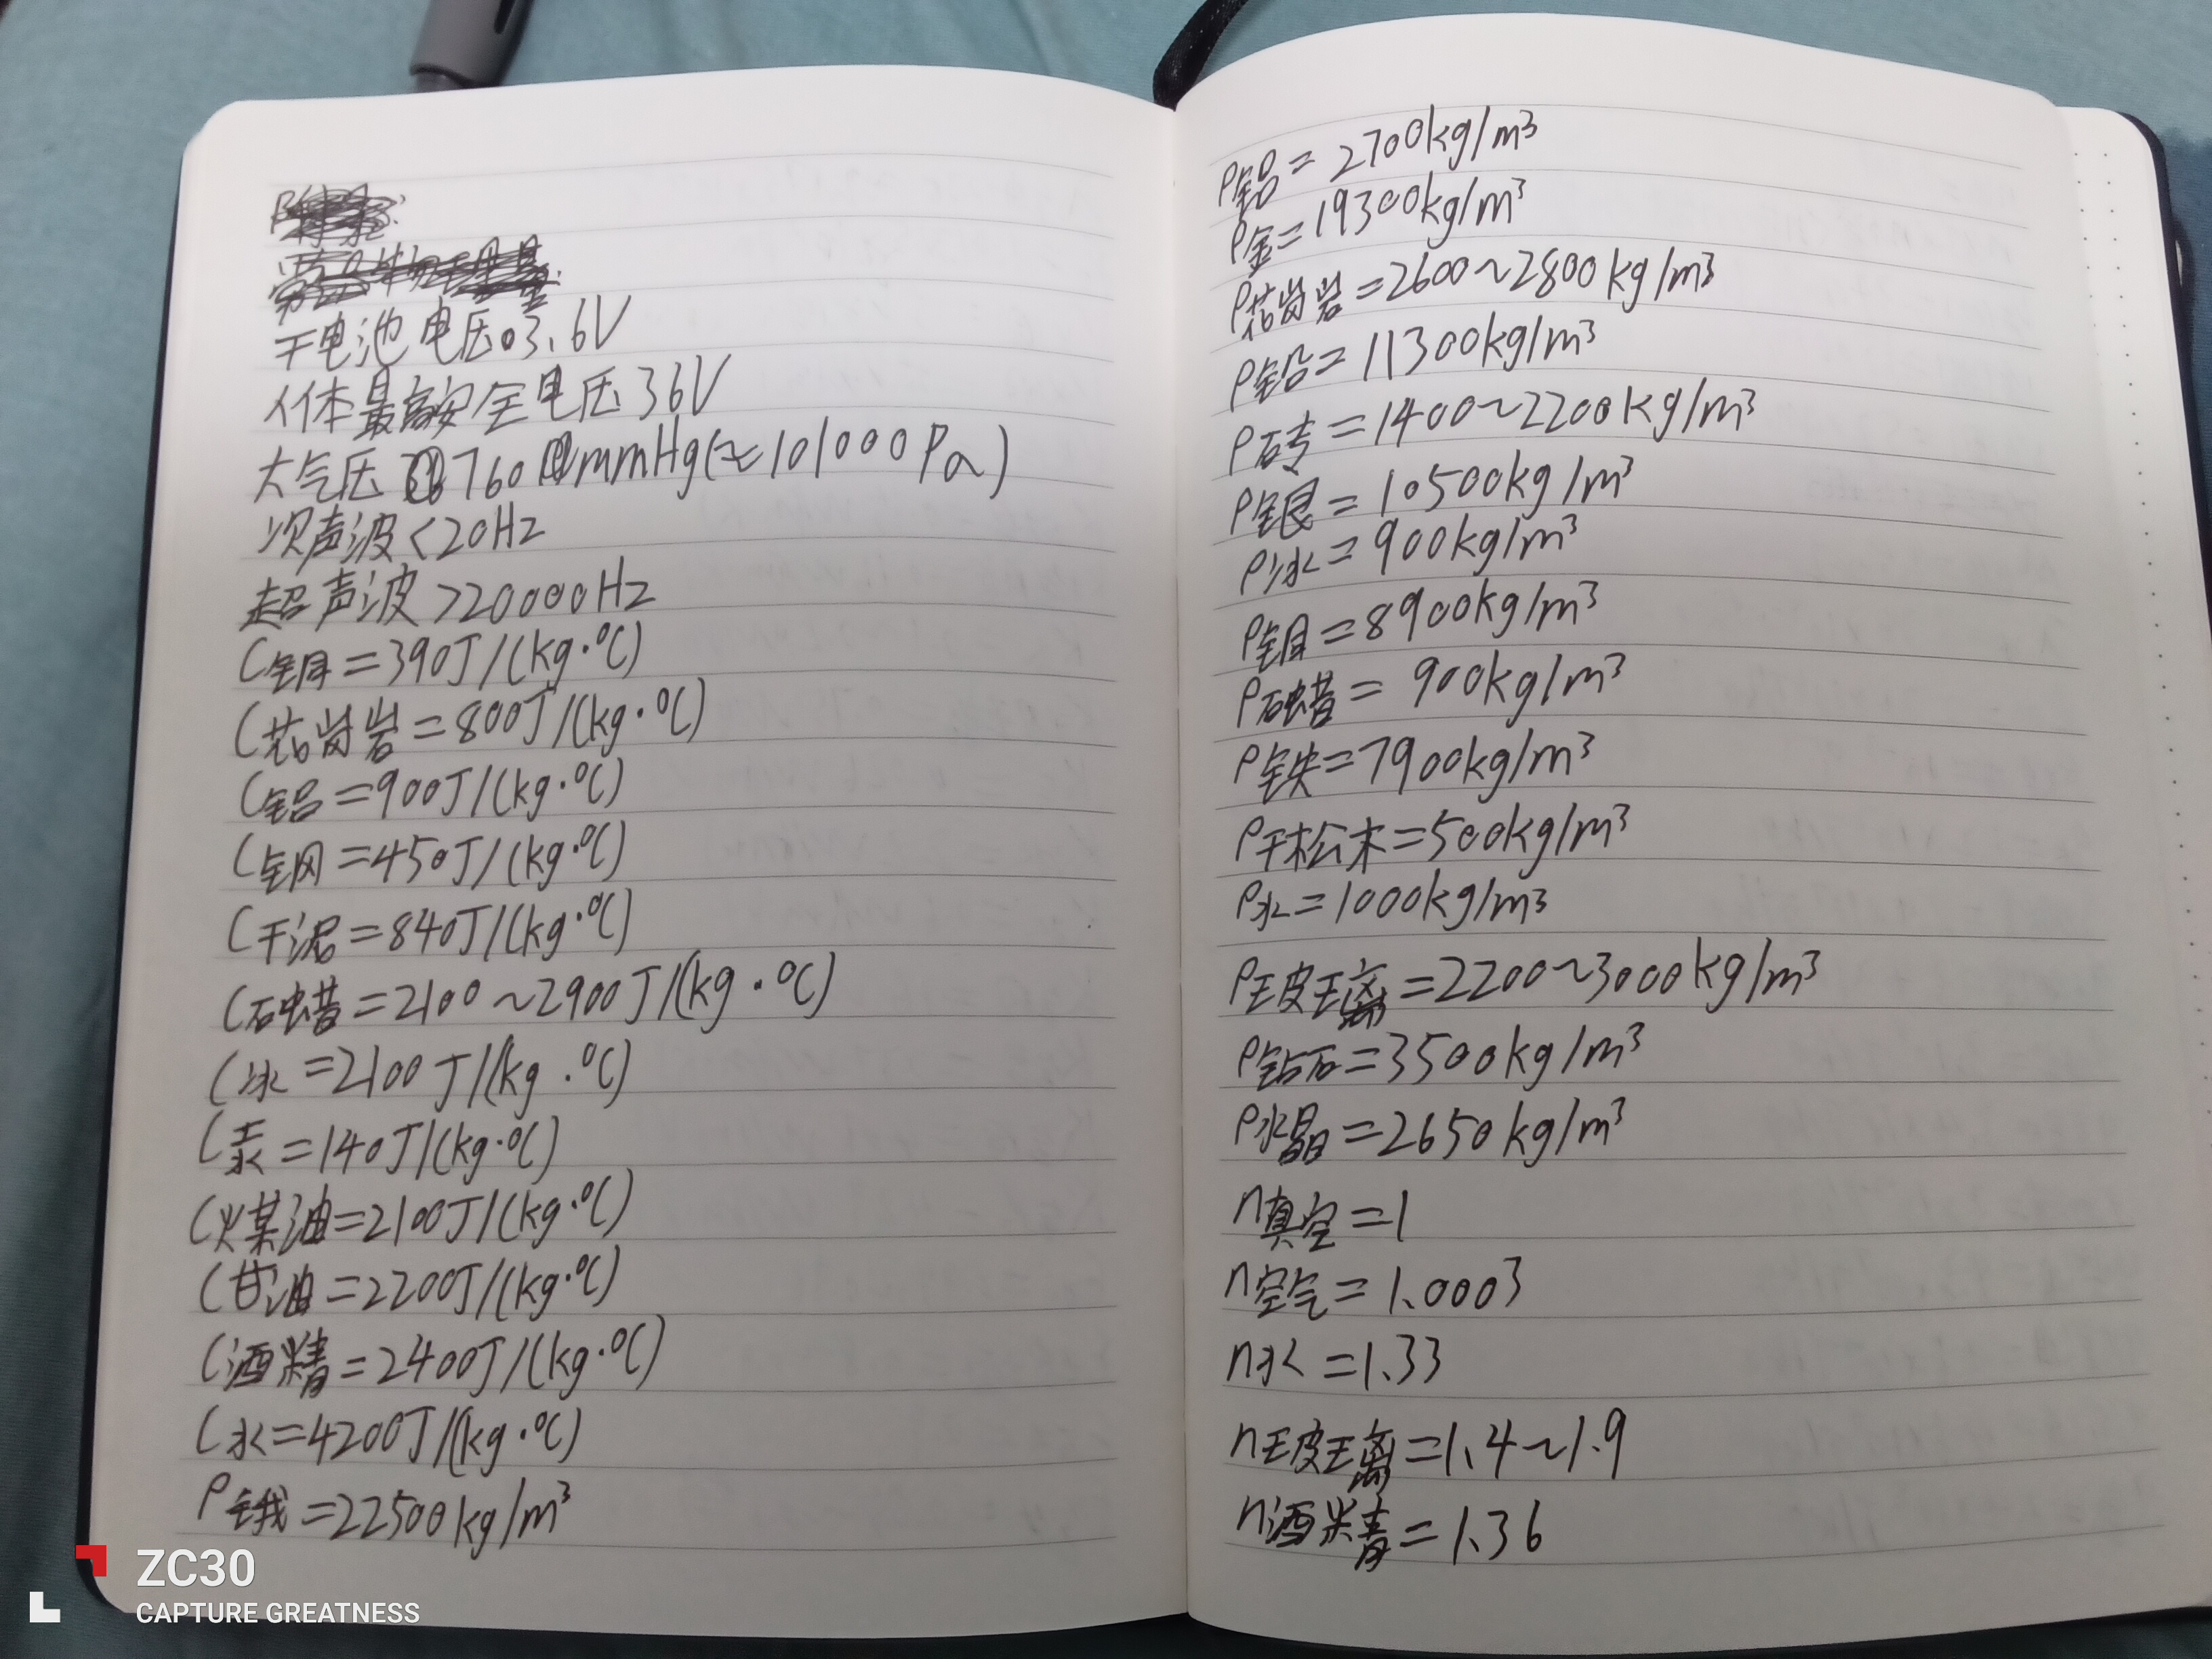 干电池电压3.6V
人体最高安全电压36V
大气压760mmHg(≈101000Pa)
次声波<20Hz
超声波>20000Hz
C铜=390J/(kg·℃)
C花岗岩=800J/(kg·℃)
C铝=900J/(kg·℃)
C钢=450J/(kg·℃)
C干泥=840J/(kg·℃)
C石蜡=2100~2900J/(kg·℃)
C冰=2100J/(kg·℃)
C汞=140J/(kg·℃)
C煤油=2100J/(kg·℃)
C甘油=2200J/(kg·℃)
C酒精=2400J/(kg·℃)
C水=4200J/(kg·℃)
ρ锇=22500kg/m³
ρ铝=2700kg/m³
ρ金=19300kg/m³
ρ花岗岩=2600~2800kg/m³
ρ铅=11300kg/m³
ρ砖=1400~2200kg/m³
ρ银=10500kg/m³
ρ冰=900kg/m³
ρ铜=8900kg/m³
ρ石蜡=900kg/m³
ρ铁=7900kg/m³
ρ干松木=500kg/m³
ρ水=1000kg/m³
ρ玻璃=2200~3000kg/m³
ρ钻石=3500kg/m³
ρ水晶=2650kg/m³
n真空=1
n空气=1.0003
n水=1.33
n玻璃=1.4~1.9
n酒精=1.36
ZC30
CAPTURE GREATNESS